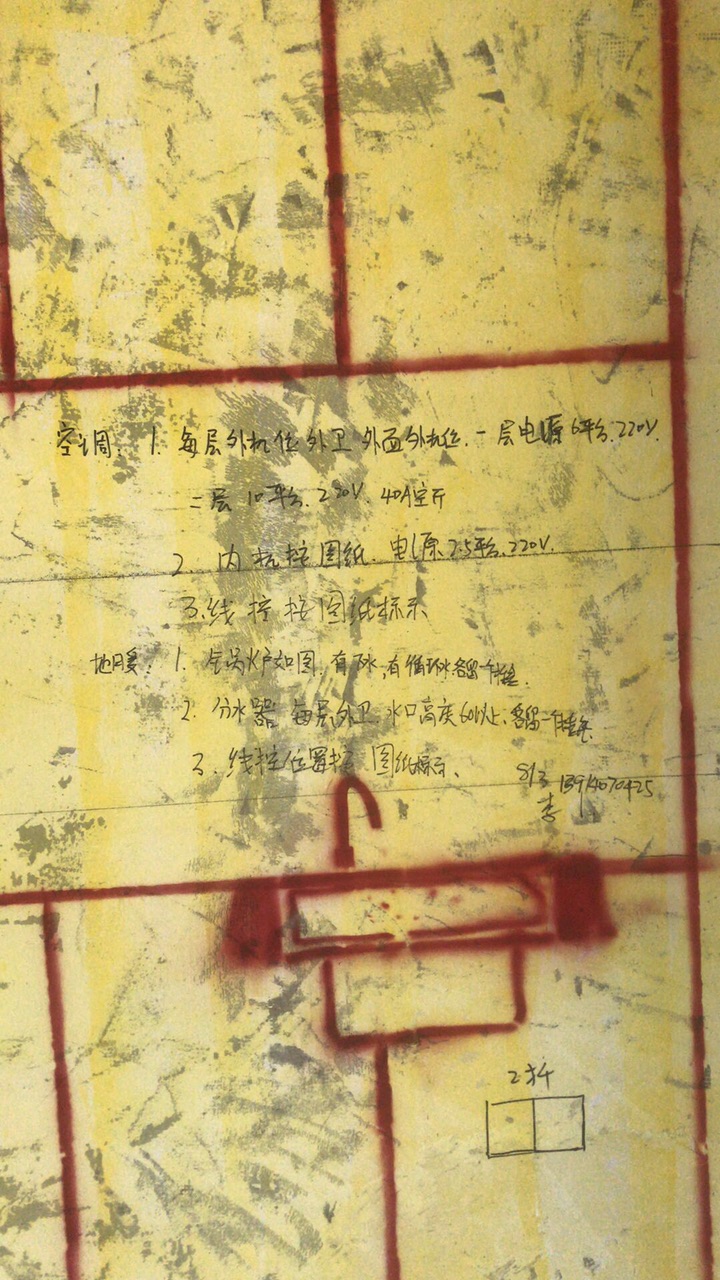 空调: 1. 每层外机位外卫 外面外机位. 一层电源6平方.220V.
二层 10平方. 220V. 40A空开
2. 内机按图纸. 电源2.5平方.220V.
3.线控按图纸标示
地暖: 1. 锅炉如图. 有下水,有循环水各留一个
2. 分水器 每层外卫 水口高度60以上.各留一个
3. 线控位置按图纸标示.
8/3
李
2开